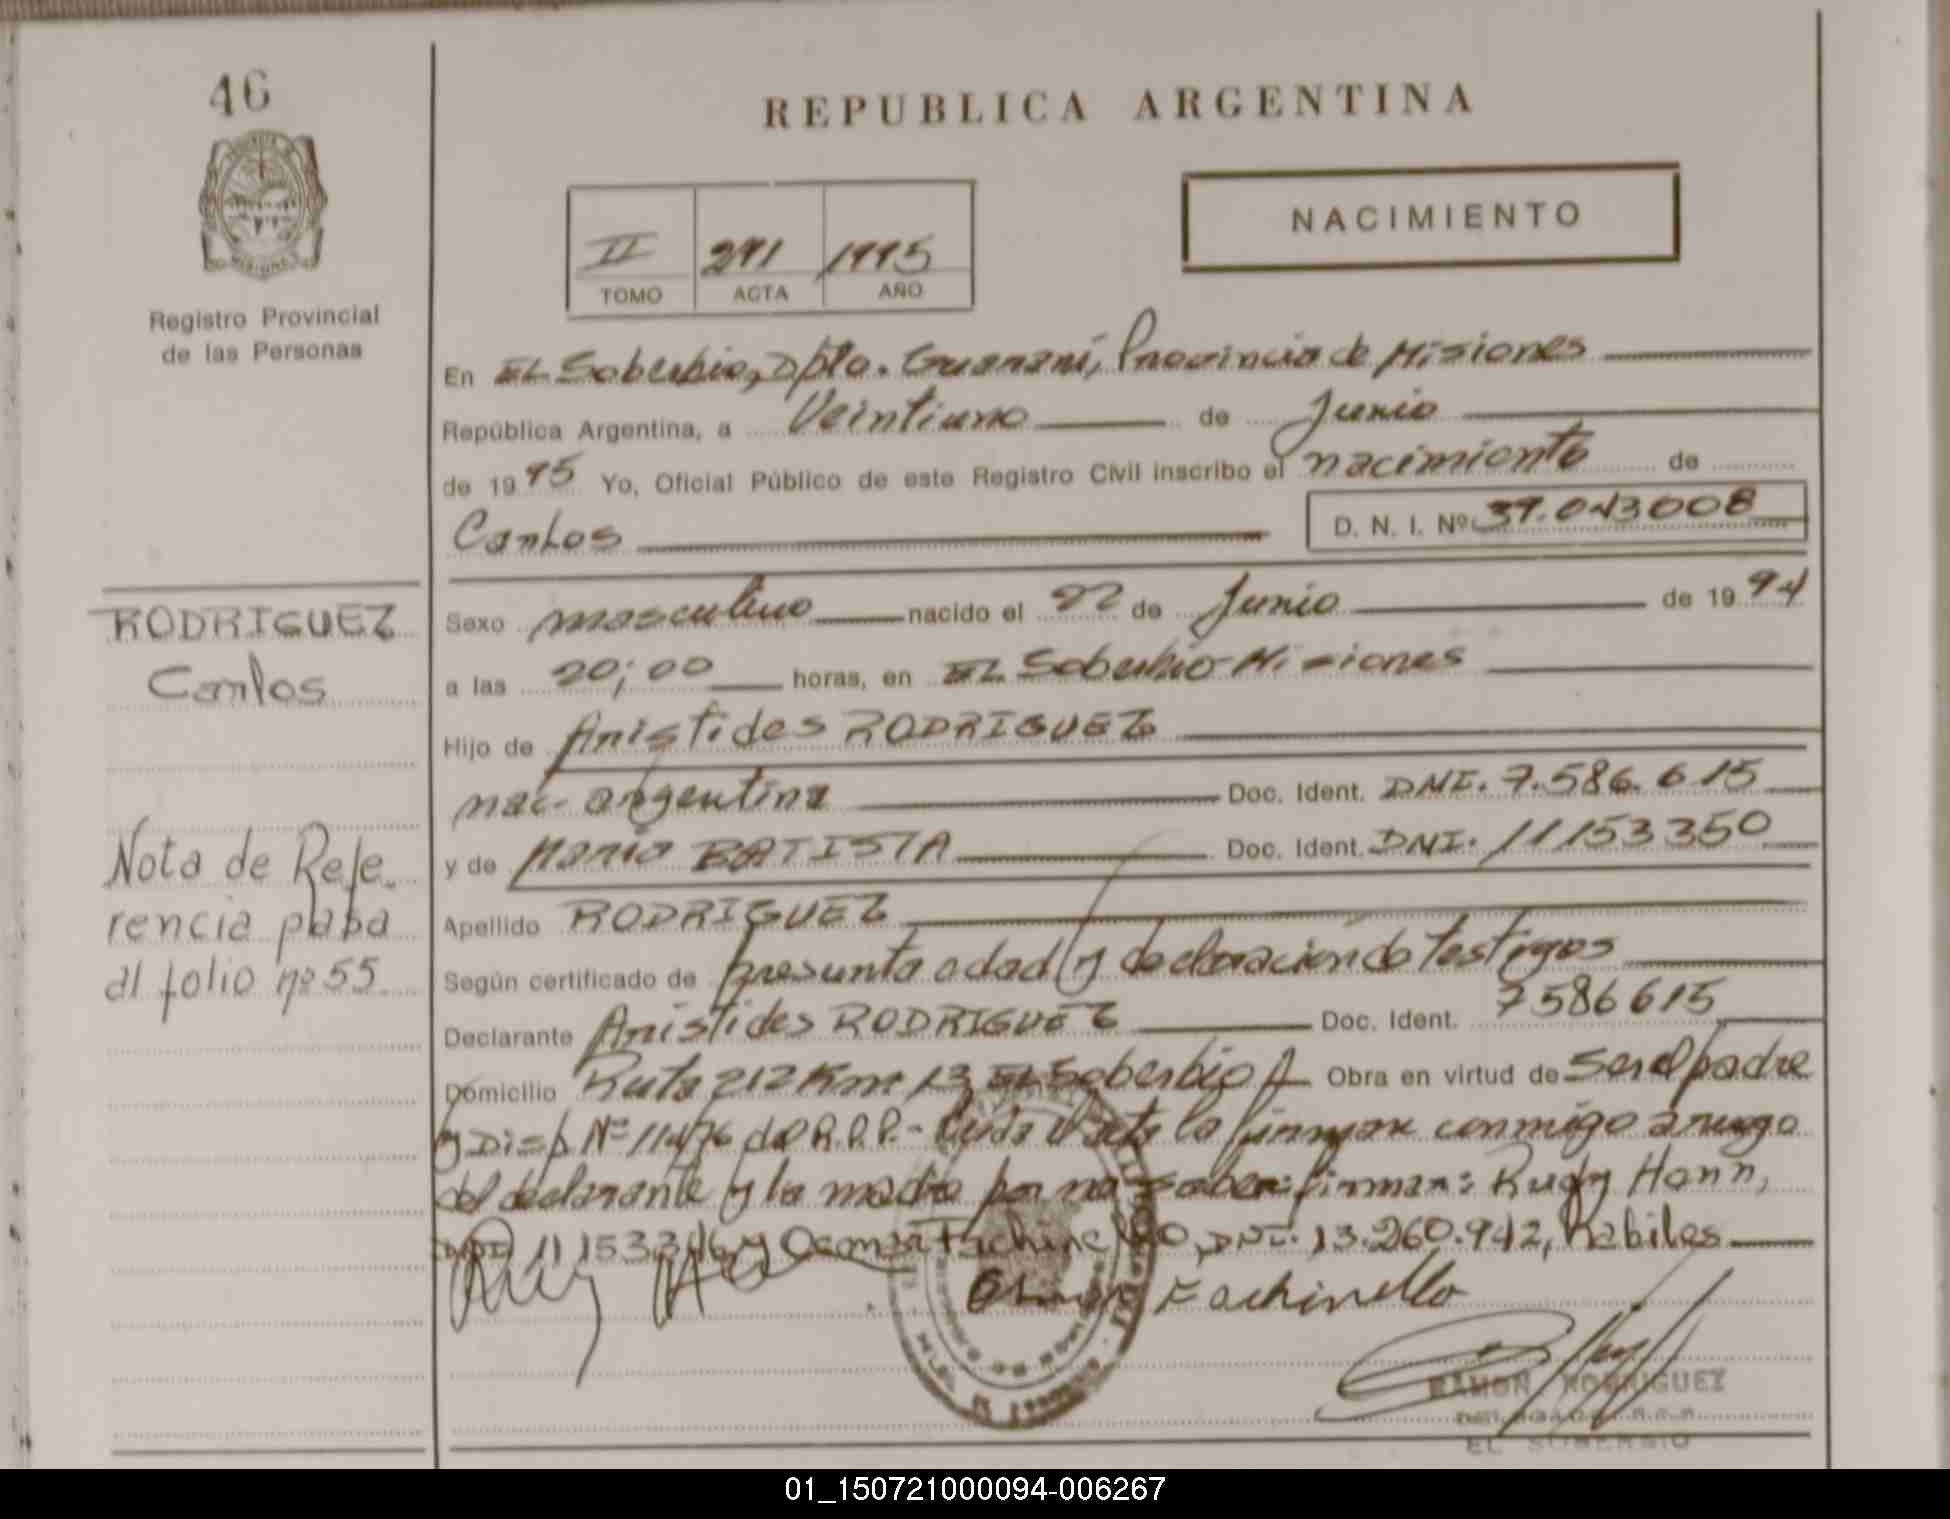 46
REPUBLICA ARGENTINA
NACIMIENTO
II 291 1995
TOMO ACTA AÑO
Registro Provincial
de las Personas
En EL Soberbio, Dpto. Guaraní, Provincia de Misiones
República Argentina, a Veintiuno de Junio
de 1995 Yo, Oficial Público de este Registro Civil inscribo el nacimiento de
Carlos D. N. I. Nº
RODRIGUEZ
Carlos
Sexo masculino nacido el 22 de Junio de 1994
a las 20;00 horas, en EL Soberbio-Misiones
Hijo de Aristides RODRIGUEZ
nac. argentina Doc. Ident. DNI. 7.586.615
y de Maria BATISTA Doc. Ident. DNI. 11153350
Apellido RODRIGUEZ
Según certificado de presunta edad y declaración de testigos
Declarante Aristides RODRIGUEZ Doc. Ident. 7586615
Domicilio Ruta 212 Km 13 EL Soberbio Obra en virtud de Ser el padre
y Disp. Nº 114/76 del R.P.P.- Leida el acta la firman conmigo a ruego
del declarante y la madre por no saber firmar: Rudy Hann,
DNI 11153346 y Osmar Fachinello, DNI. 13.260.942, habiles
Osmar Fachinello
Nota de Refe-
rencia pasa
al folio nº 55
RAMON RODRIGUEZ
DELEGADO R.P.P.
EL SOBERBIO
01_150721000094-006267